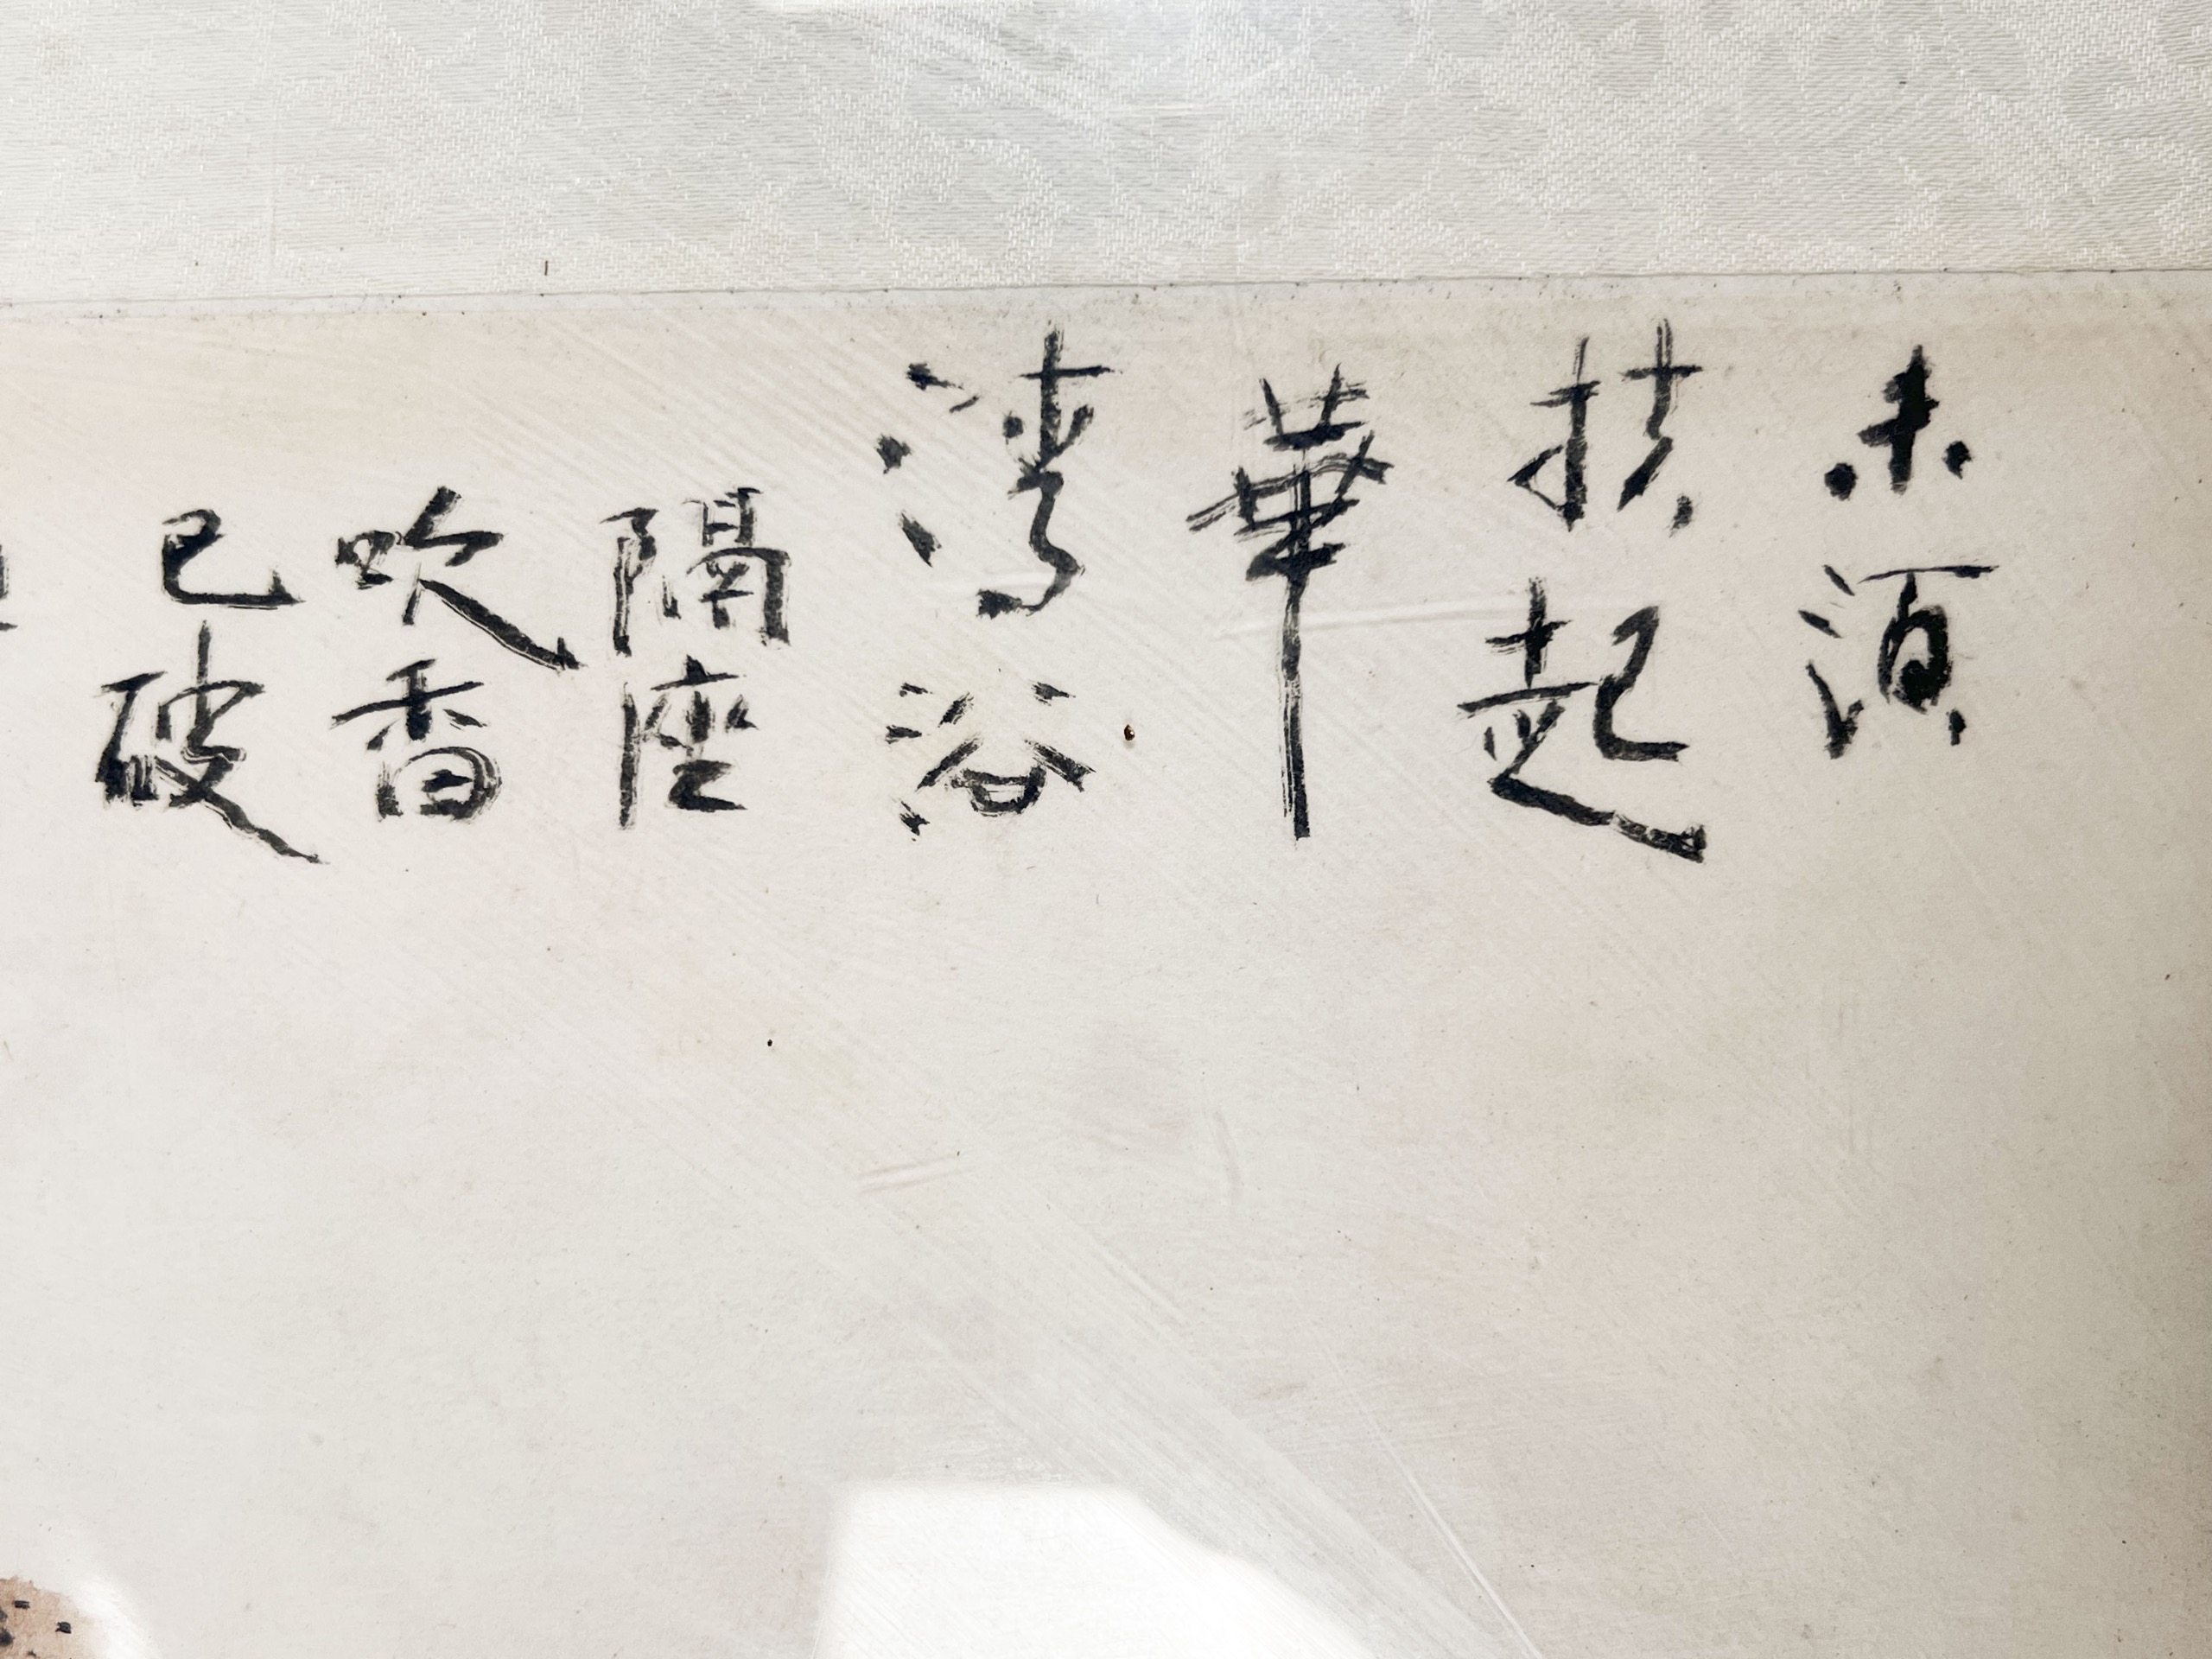 未須
扶起
華
清浴
隔座
吹香
已破